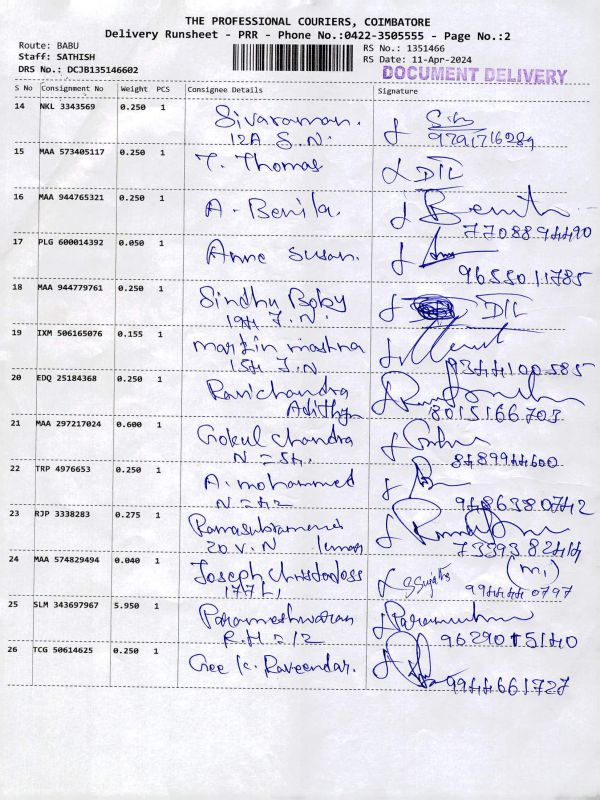 THE PROFESSIONAL COURIERS, COIMBATORE
Delivery Runsheet - PRR - Phone No.:0422-3505555 - Page No.:2
Route: BABU
RS No.: 1351466
Staff: SATHISH
RS Date: 11-Apr-2024
DRS No.: DCJB135146602
DOCUMENT DELIVERY
S No Consignment No Weight PCS Consignee Details Signature
14 NKL 3343569 0.250 1 Sivaraman.
12A S.N. 9791716289
15 MAA 573405117 0.250 1 T. Thomas DIL
16 MAA 944765321 0.250 1 A. Benila.
7708894490
17 PLG 600014392 0.050 1 Anne Susan.
9655011785
18 MAA 944779761 0.250 1 Sindhu Boby DIL
19H J.N.
19 IXM 506165076 0.155 1 Martin mashna
15H J.N. 9344100585
20 EDQ 25184368 0.250 1 Ravichandra
Adithya 8015166703
21 MAA 297217024 0.600 1 Gokul Chandra
N = 54. 8489944600
22 TRP 4976653 0.250 1 A. mohammed
N = 42 9486380742
23 RJP 3338283 0.275 1
20 V. N 7339382414
24 MAA 574829494 0.040 1 Joseph Christodoss SSujatha (m,)
177 L, 9944440797
25 SLM 343697967 5.950 1 Parameshwaran
R.H = 12 9629015140
26 TCG 50614625 0.250 1 Gee K. Raveendar.
9944661727